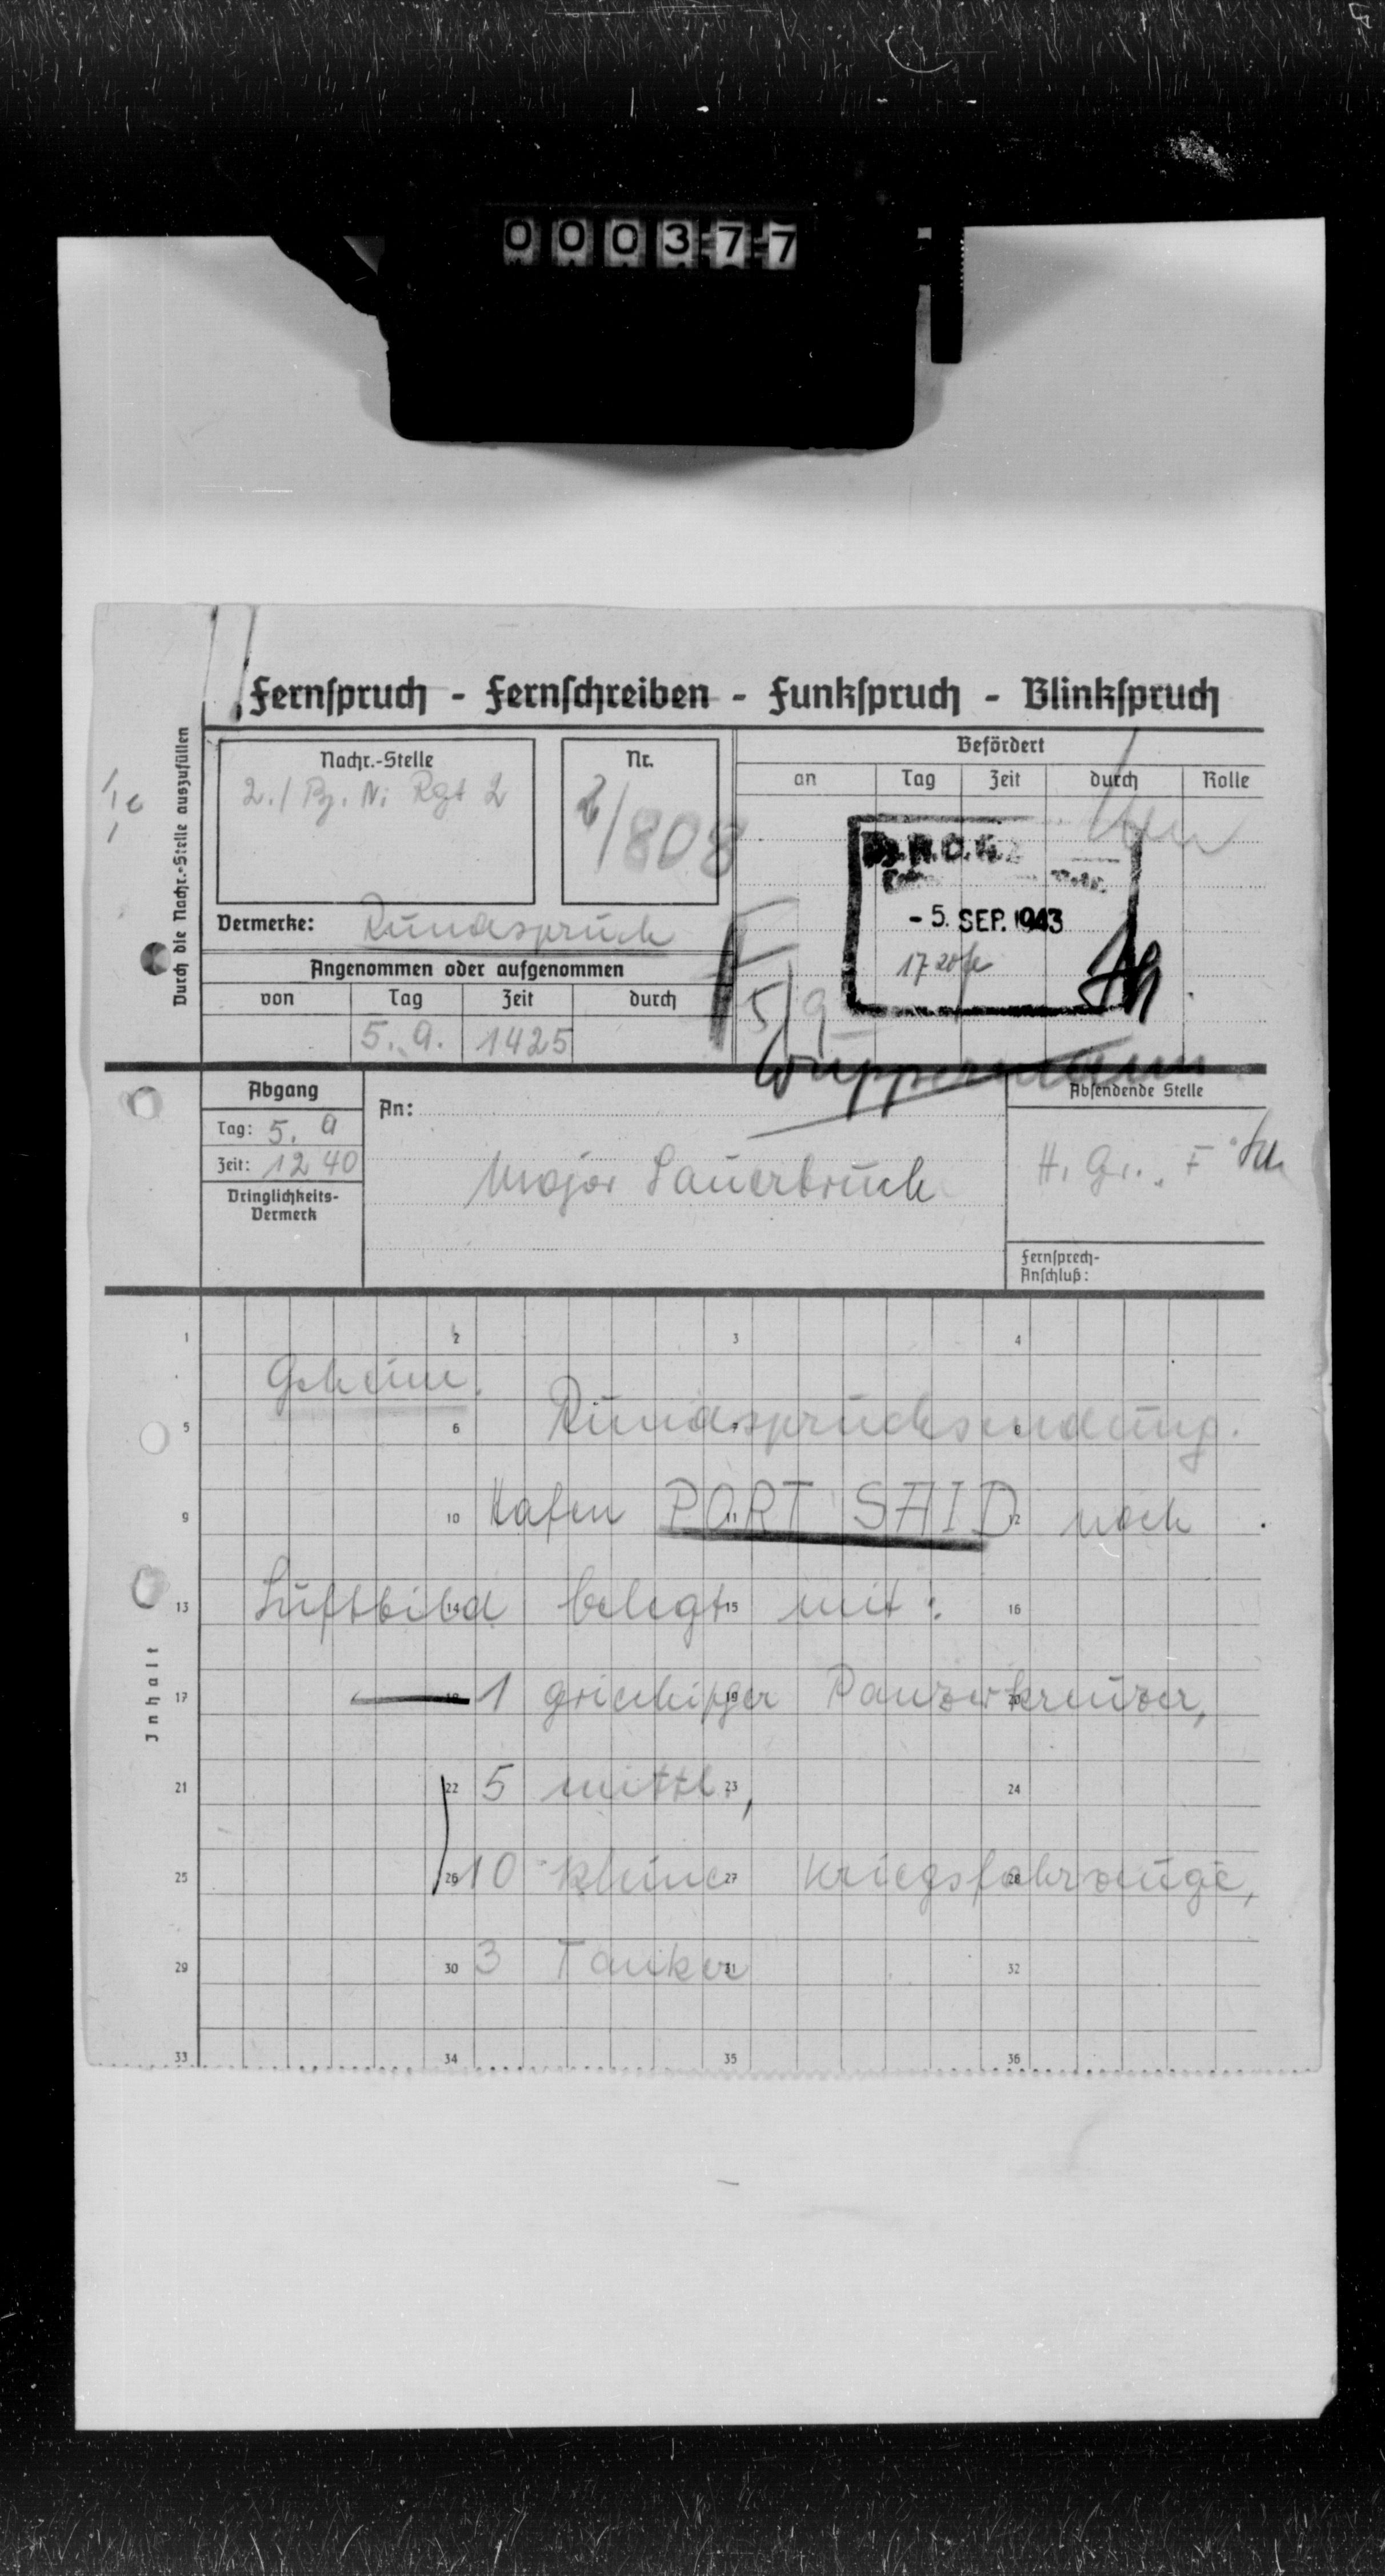 000377
Fernspruch - Fernschreiben - Funkspruch - Blinkspruch
Durch die Nachr.-Stelle auszufüllen
Nachr.-Stelle
2./ Pz. N. Rgt 2
Nr.
/808
Vermerke: Rundspruch
Angenommen oder aufgenommen
von Tag Zeit durch
5. 9. 1425
Befördert
an Tag Zeit durch Rolle
- 5. SEP. 1943
17 20
5/9
Wuppermann
Abgang
Tag: 5. 9
Zeit: 12 40
Dringlichkeits-
Vermerk
An:
Major Sauerbruch
Absendende Stelle
H. Gr. F
Fernsprech-
Anschluß:
Inhalt
1 2 3 4
Geheim.
5 6 7 8
Rundspruchsendung.
9 10 11 12
Hafen PORT SAID nach
13 14 15 16
Luftbild belegt mit:
17 18 19 20
1 griechischer Panzerkreuzer,
21 22 23 24
5 mittl.,
25 26 27 28
10 kleine Kriegsfahrzeuge,
29 30 31 32
3 Tanker
33 34 35 36